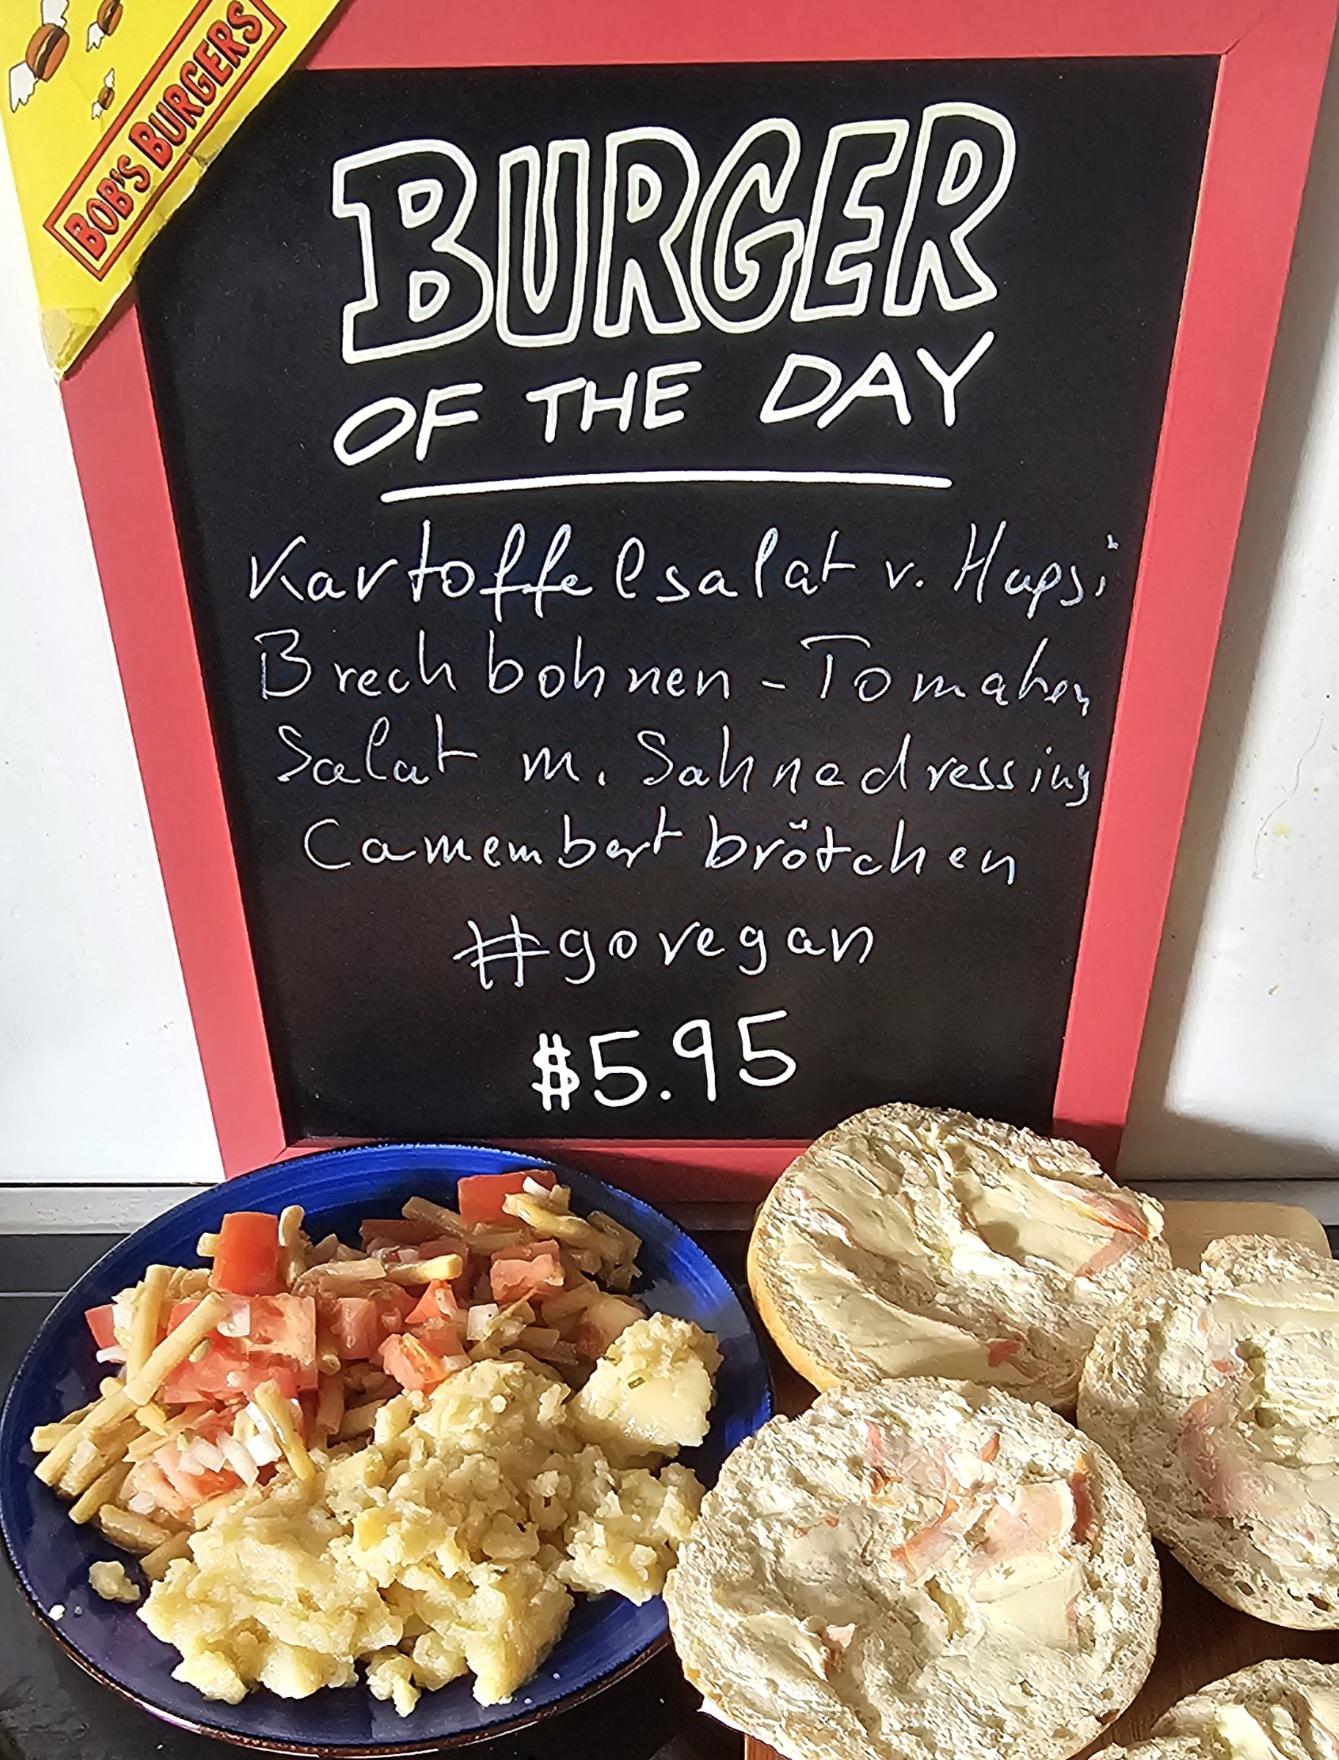 BOB'S BURGERS
BURGER
OF THE DAY
Kartoffelsalat v. Hapsi
Brechbohnen - Tomaten
Salat m. Sahnedressing
Camembert brötchen
#govegan
$5.95